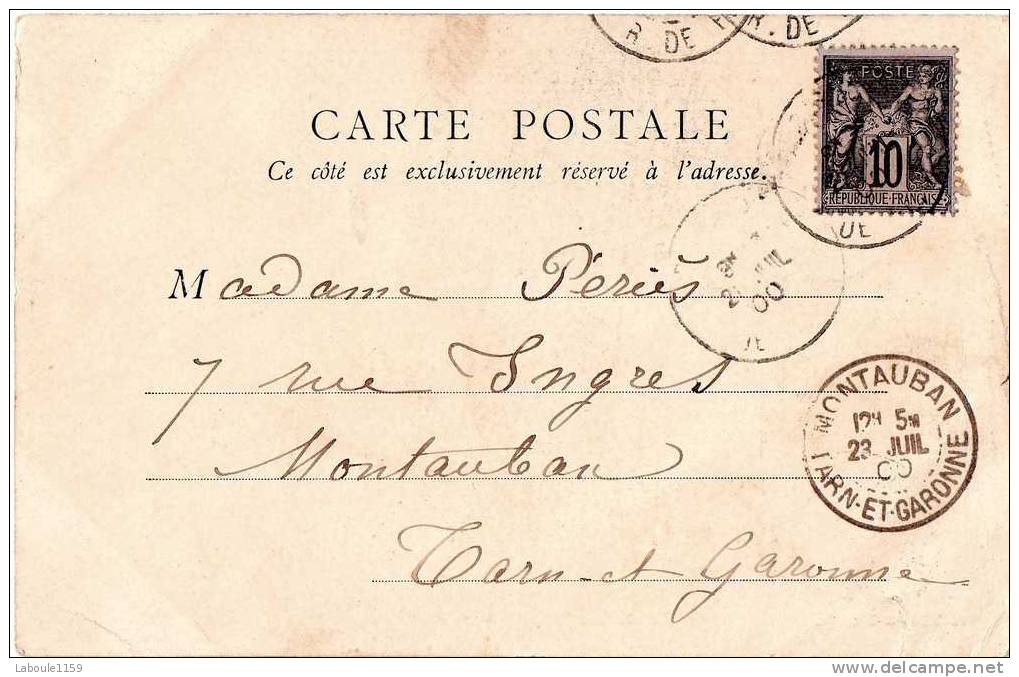 R. DE
R. DE
POSTE
10
RÉPUBLIQUE FRANÇAISE
CARTE POSTALE
Ce côté est exclusivement réservé à l'adresse.
JUIL
00
Madame Périès
7 rue Ingres
Montauban
Tarn-et Garonne
MONTAUBAN
23 JUIL
00
TARN-ET-GARONNE
Laboule1159
www.delcampe.net